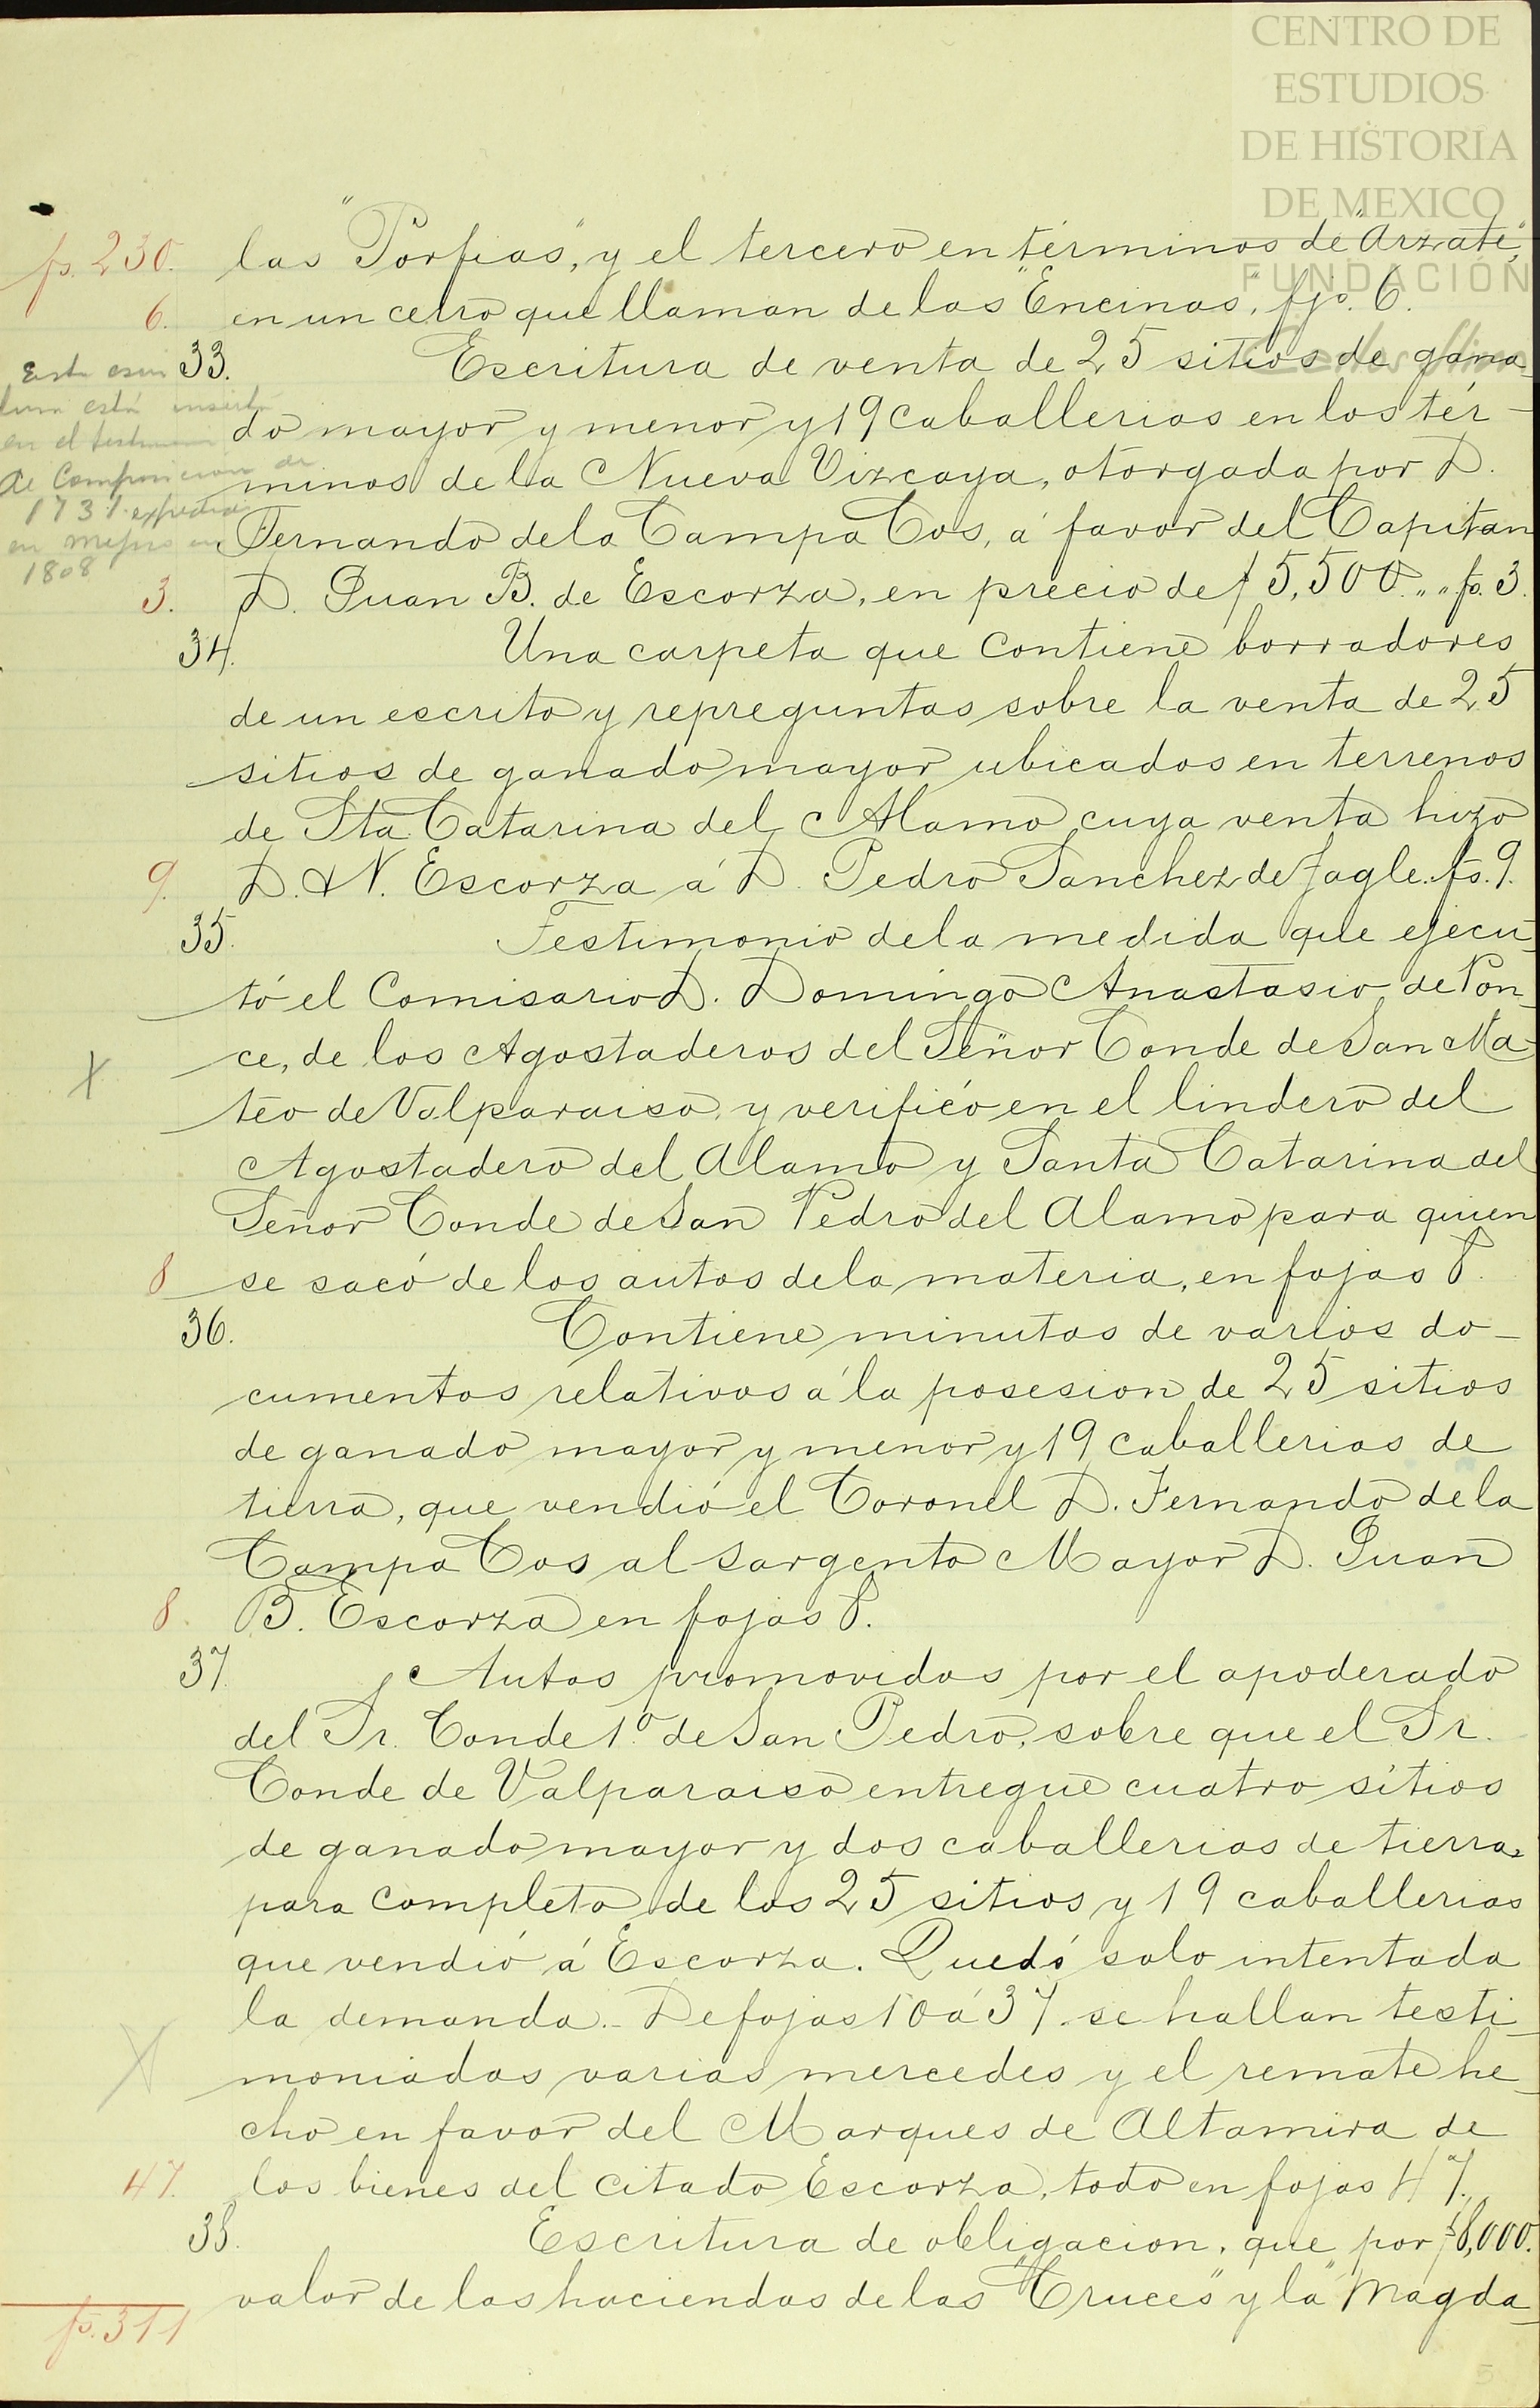 CENTRO DE
ESTUDIOS
DE HISTORIA
DE MEXICO
FUNDACIÓN
fs. 230. las "Porfias", y el tercero en términos de "Arzate",
6. en un cerro que llaman de las "Encinas", fjs. 6.
33. Escritura de venta de 25 sitios de gana-
do mayor y menor y 19 caballerias en los tér-
minos de la Nueva Vizcaya, otorgada por D.
Fernando de la Campa Cos, á favor del Capitan
3. D. Juan B. de Escorza, en precio de $5,500. „ „ fs. 3.
Esta escri
tura está inserta
en el testimonio
de Composicion de
1731 expedido
en Mejico en
1808
34. Una carpeta que contiene borradores
de un escrito y repreguntas sobre la venta de 25
sitios de ganado mayor ubicados en terrenos
de Sta Catarina del Alamo cuya venta hizo
9. D. N. Escorza á D. Pedro Sanchez de Tagle. fs. 9.
35. Testimonio de la medida que ejecu-
tó el Comisario D. Domingo Anastasio de Pon-
X ce, de los Agostaderos del Señor Conde de San Ma-
teo de Valparaiso, y verificó en el lindero del
Agostadero del Alamo y Santa Catarina del
Señor Conde de San Pedro del Alamo para quien
8 se sacó de los autos de la materia, en fojas 8.
36. Contiene minutas de varios do-
cumentos relativos á la posesion de 25 sitios
de ganado mayor y menor y 19 caballerias de
tierra, que vendió el Coronel D. Fernando de la
Campa Cos al Sargento Mayor D. Juan
8. B. Escorza en fojas 8.
37. Autos promovidos por el apoderado
del Sr. Conde 1º de San Pedro, sobre que el Sr.
Conde de Valparaiso entregue cuatro sitios
de ganado mayor y dos caballerias de tierra,
para completo de los 25 sitios y 19 caballerias
que vendió á Escorza. Quedó solo intentada
la demanda. - De fojas 10 á 37. se hallan testi-
X moniadas varias mercedes y el remate he-
cho en favor del Marques de Altamira de
47. los bienes del citado Escorza, todo en fojas 47.
38. Escritura de obligacion, que por $8,000.
valor de las haciendas de las "Cruces" y la "Magda-
fs. 311
5